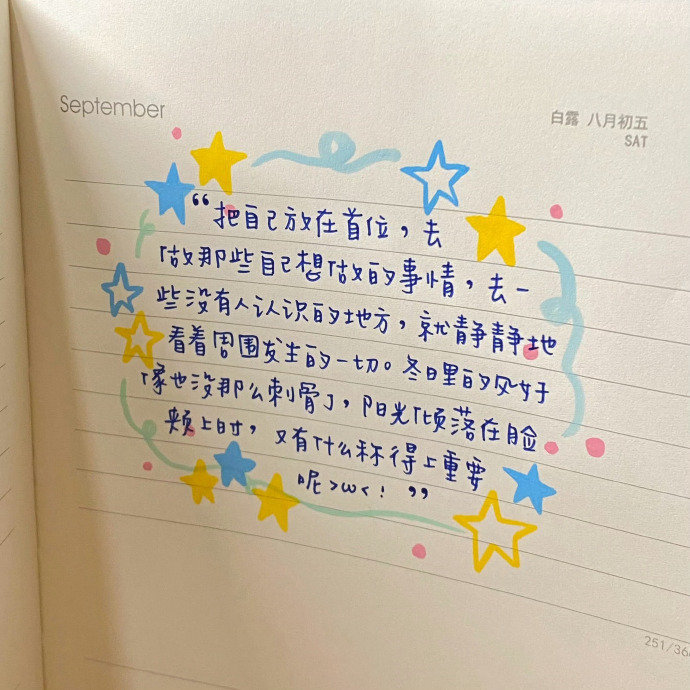 September
白露 八月初五
SAT
“把自己放在首位，去
做那些自己想做的事情，去一
些没有人认识的地方，就静静地
看着周围发生的一切。冬日里的风好
像也没那么刺骨了，阳光倾落在脸
颊上时，又有什么称得上重要
呢>ω<！”
251/36